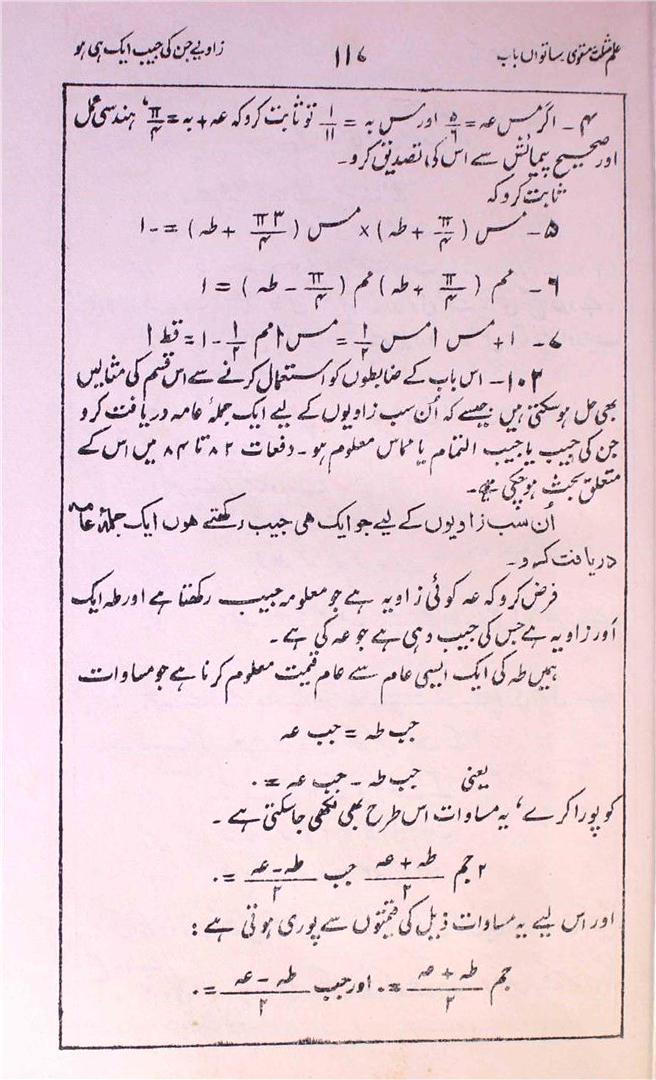 علم مثلث مستوی ساتواں باب
۱۱۷
زاویے جن کی جیب ایک ہی ہو
۴۔ اگر مس عہ = ۵/۶ اور مس بہ = ۱/۱۱ تو ثابت کرو کہ عہ + بہ = π/۴، ہندسی عمل
اور صحیح پیمائش سے اس کی تصدیق کرو۔
ثابت کرو کہ
۵۔ مس (π/۴ + طہ) × مس (۳π/۴ + طہ) = -۱
۶۔ مم (π/۴ + طہ) مم (π/۴ - طہ) = ۱
۷۔ ۱ + مس ا مس ا/۲ = مس ا مم ا/۲ - ۱ = قط ا
۱۰۳۔ اس باب کے ضابطوں کو استعمال کرنے سے اس قسم کی مثالیں
بھی حل ہوسکتی ہیں جیسے کہ اُن سب زاویوں کے لیے ایک جملۂ عامہ دریافت کرو
جن کی جیب یا جیب التمام یا مماس معلوم ہو۔ دفعات ۸۲ تا ۸۴ میں اس کے
متعلق بحث ہوچکی ہے۔
اُن سب زاویوں کے لیے جو ایک ہی جیب رکھتے ہوں ایک جملۂ عامہ
دریافت کرو۔
فرض کرو کہ عہ کوئی زاویہ ہے جو معلومہ جیب رکھتا ہے اور طہ ایک
اور زاویہ ہے جس کی جیب وہی ہے جو عہ کی ہے۔
ہمیں طہ کی ایک ایسی عام سے عام قیمت معلوم کرنا ہے جو مساوات
جب طہ = جب عہ
یعنی جب طہ - جب عہ = ۰
کو پورا کرے، یہ مساوات اس طرح بھی لکھی جاسکتی ہے۔
۲ جم (طہ + عہ)/۲ جب (طہ - عہ)/۲ = ۰
اور اس لیے یہ مساوات ذیل کی قیمتوں سے پوری ہوتی ہے :
جم (طہ + عہ)/۲ = ۰ اور جیب (طہ - عہ)/۲ = ۰